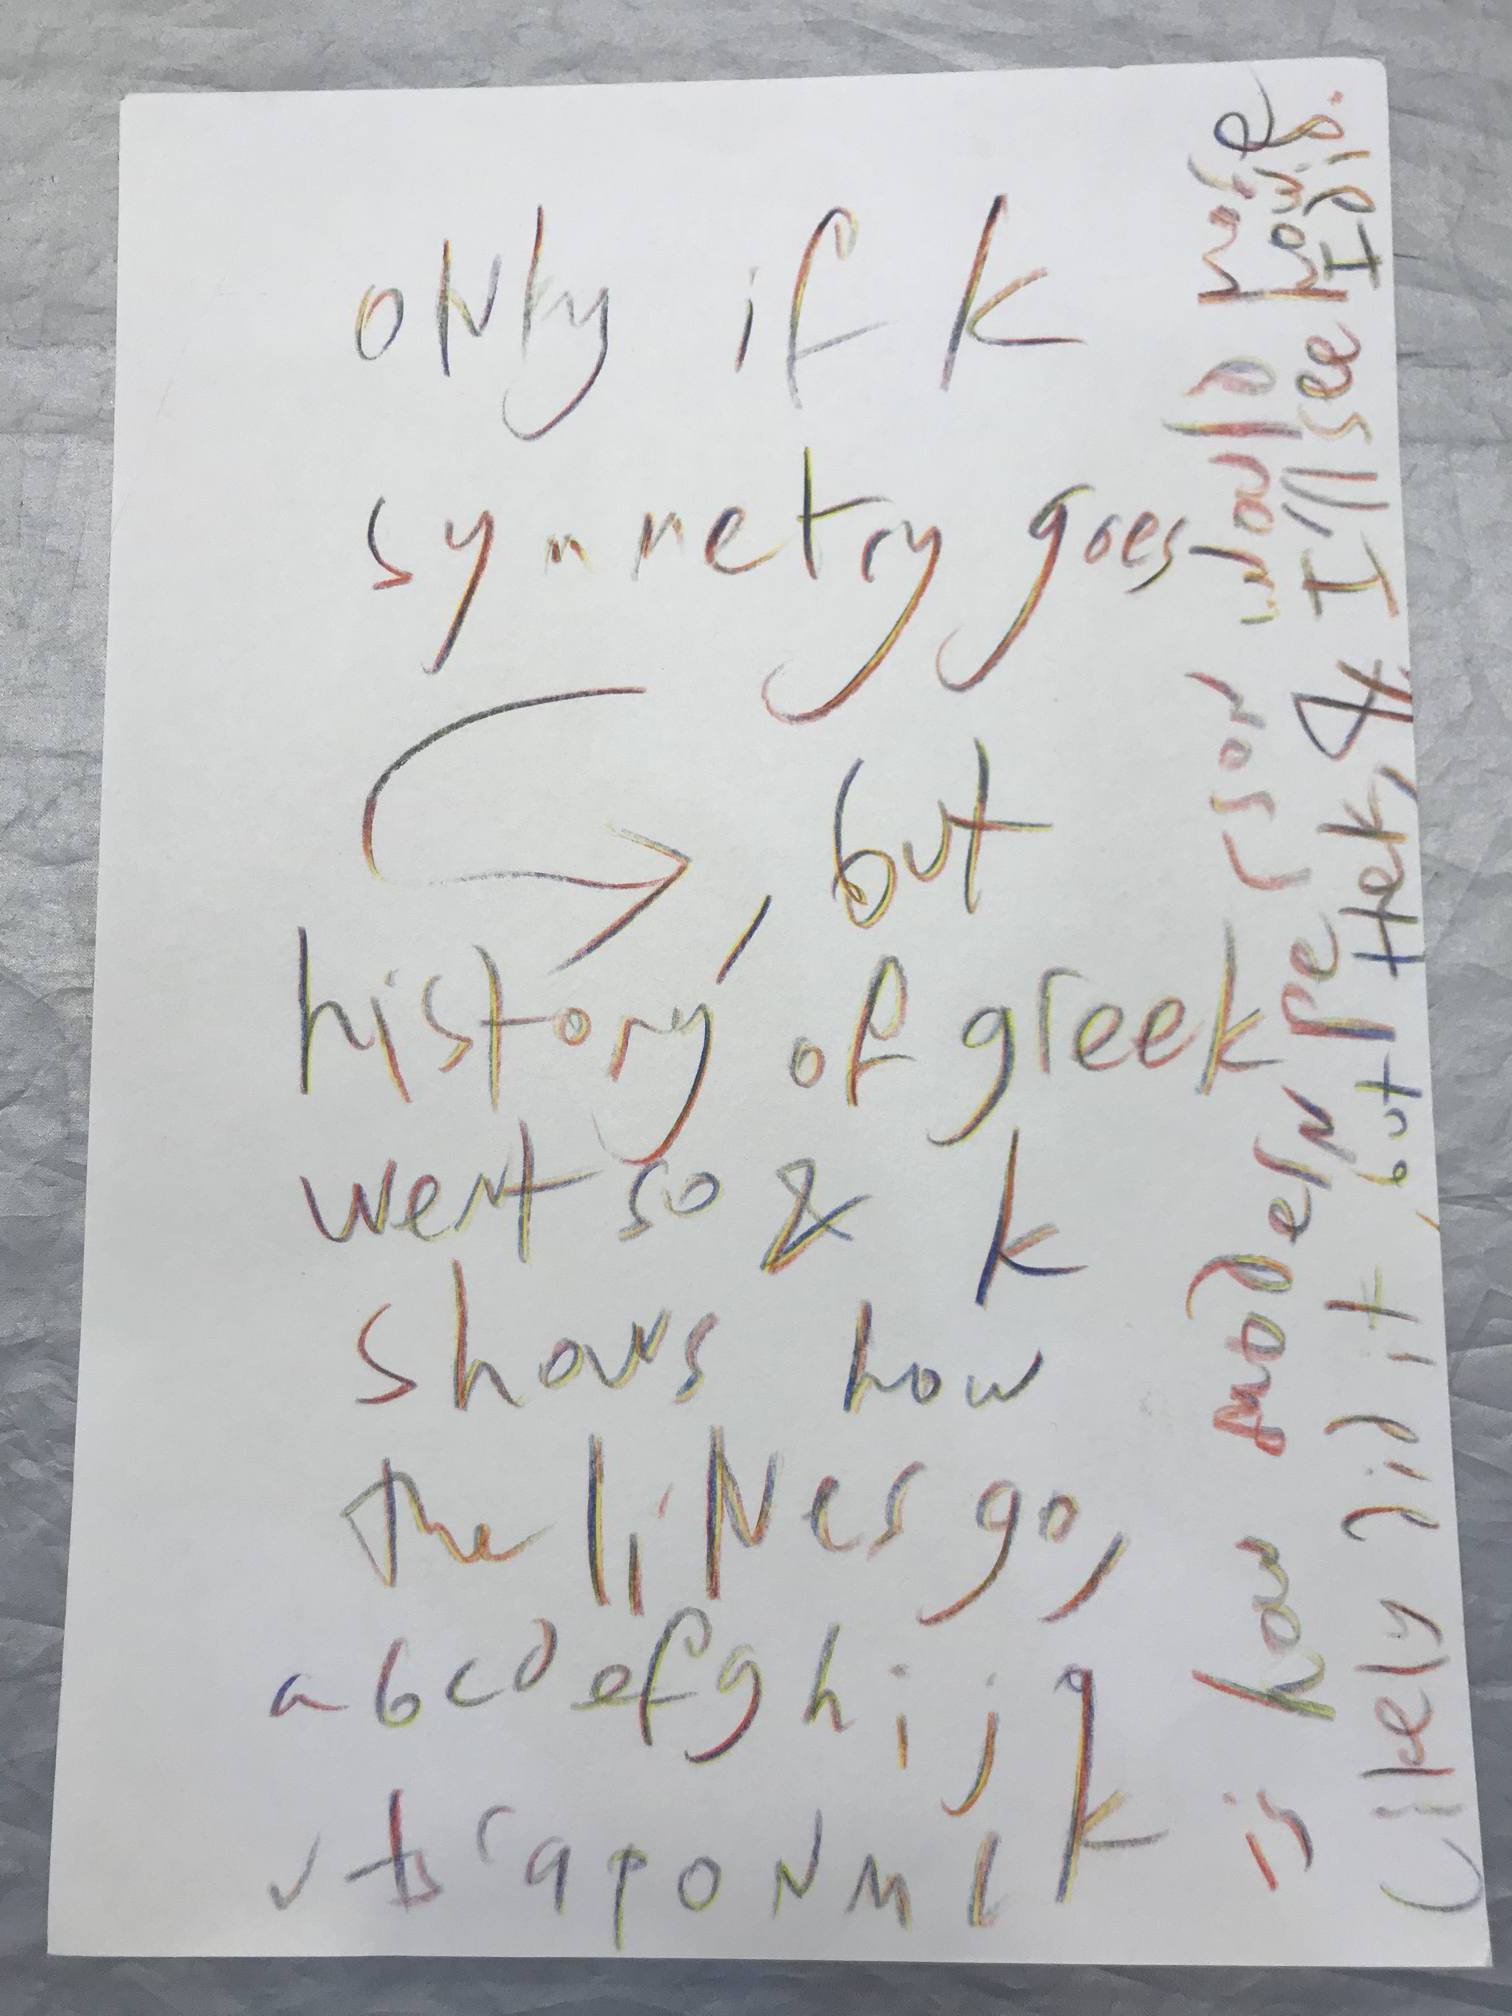 only if k
symmetry goes
, but
history of greek
went so & k
shows how
the lines go,
a b c d e f g h i j
t s r q p o n m l k
is how modern person would note
likely did it, but Hek, & I'll see how
I did.